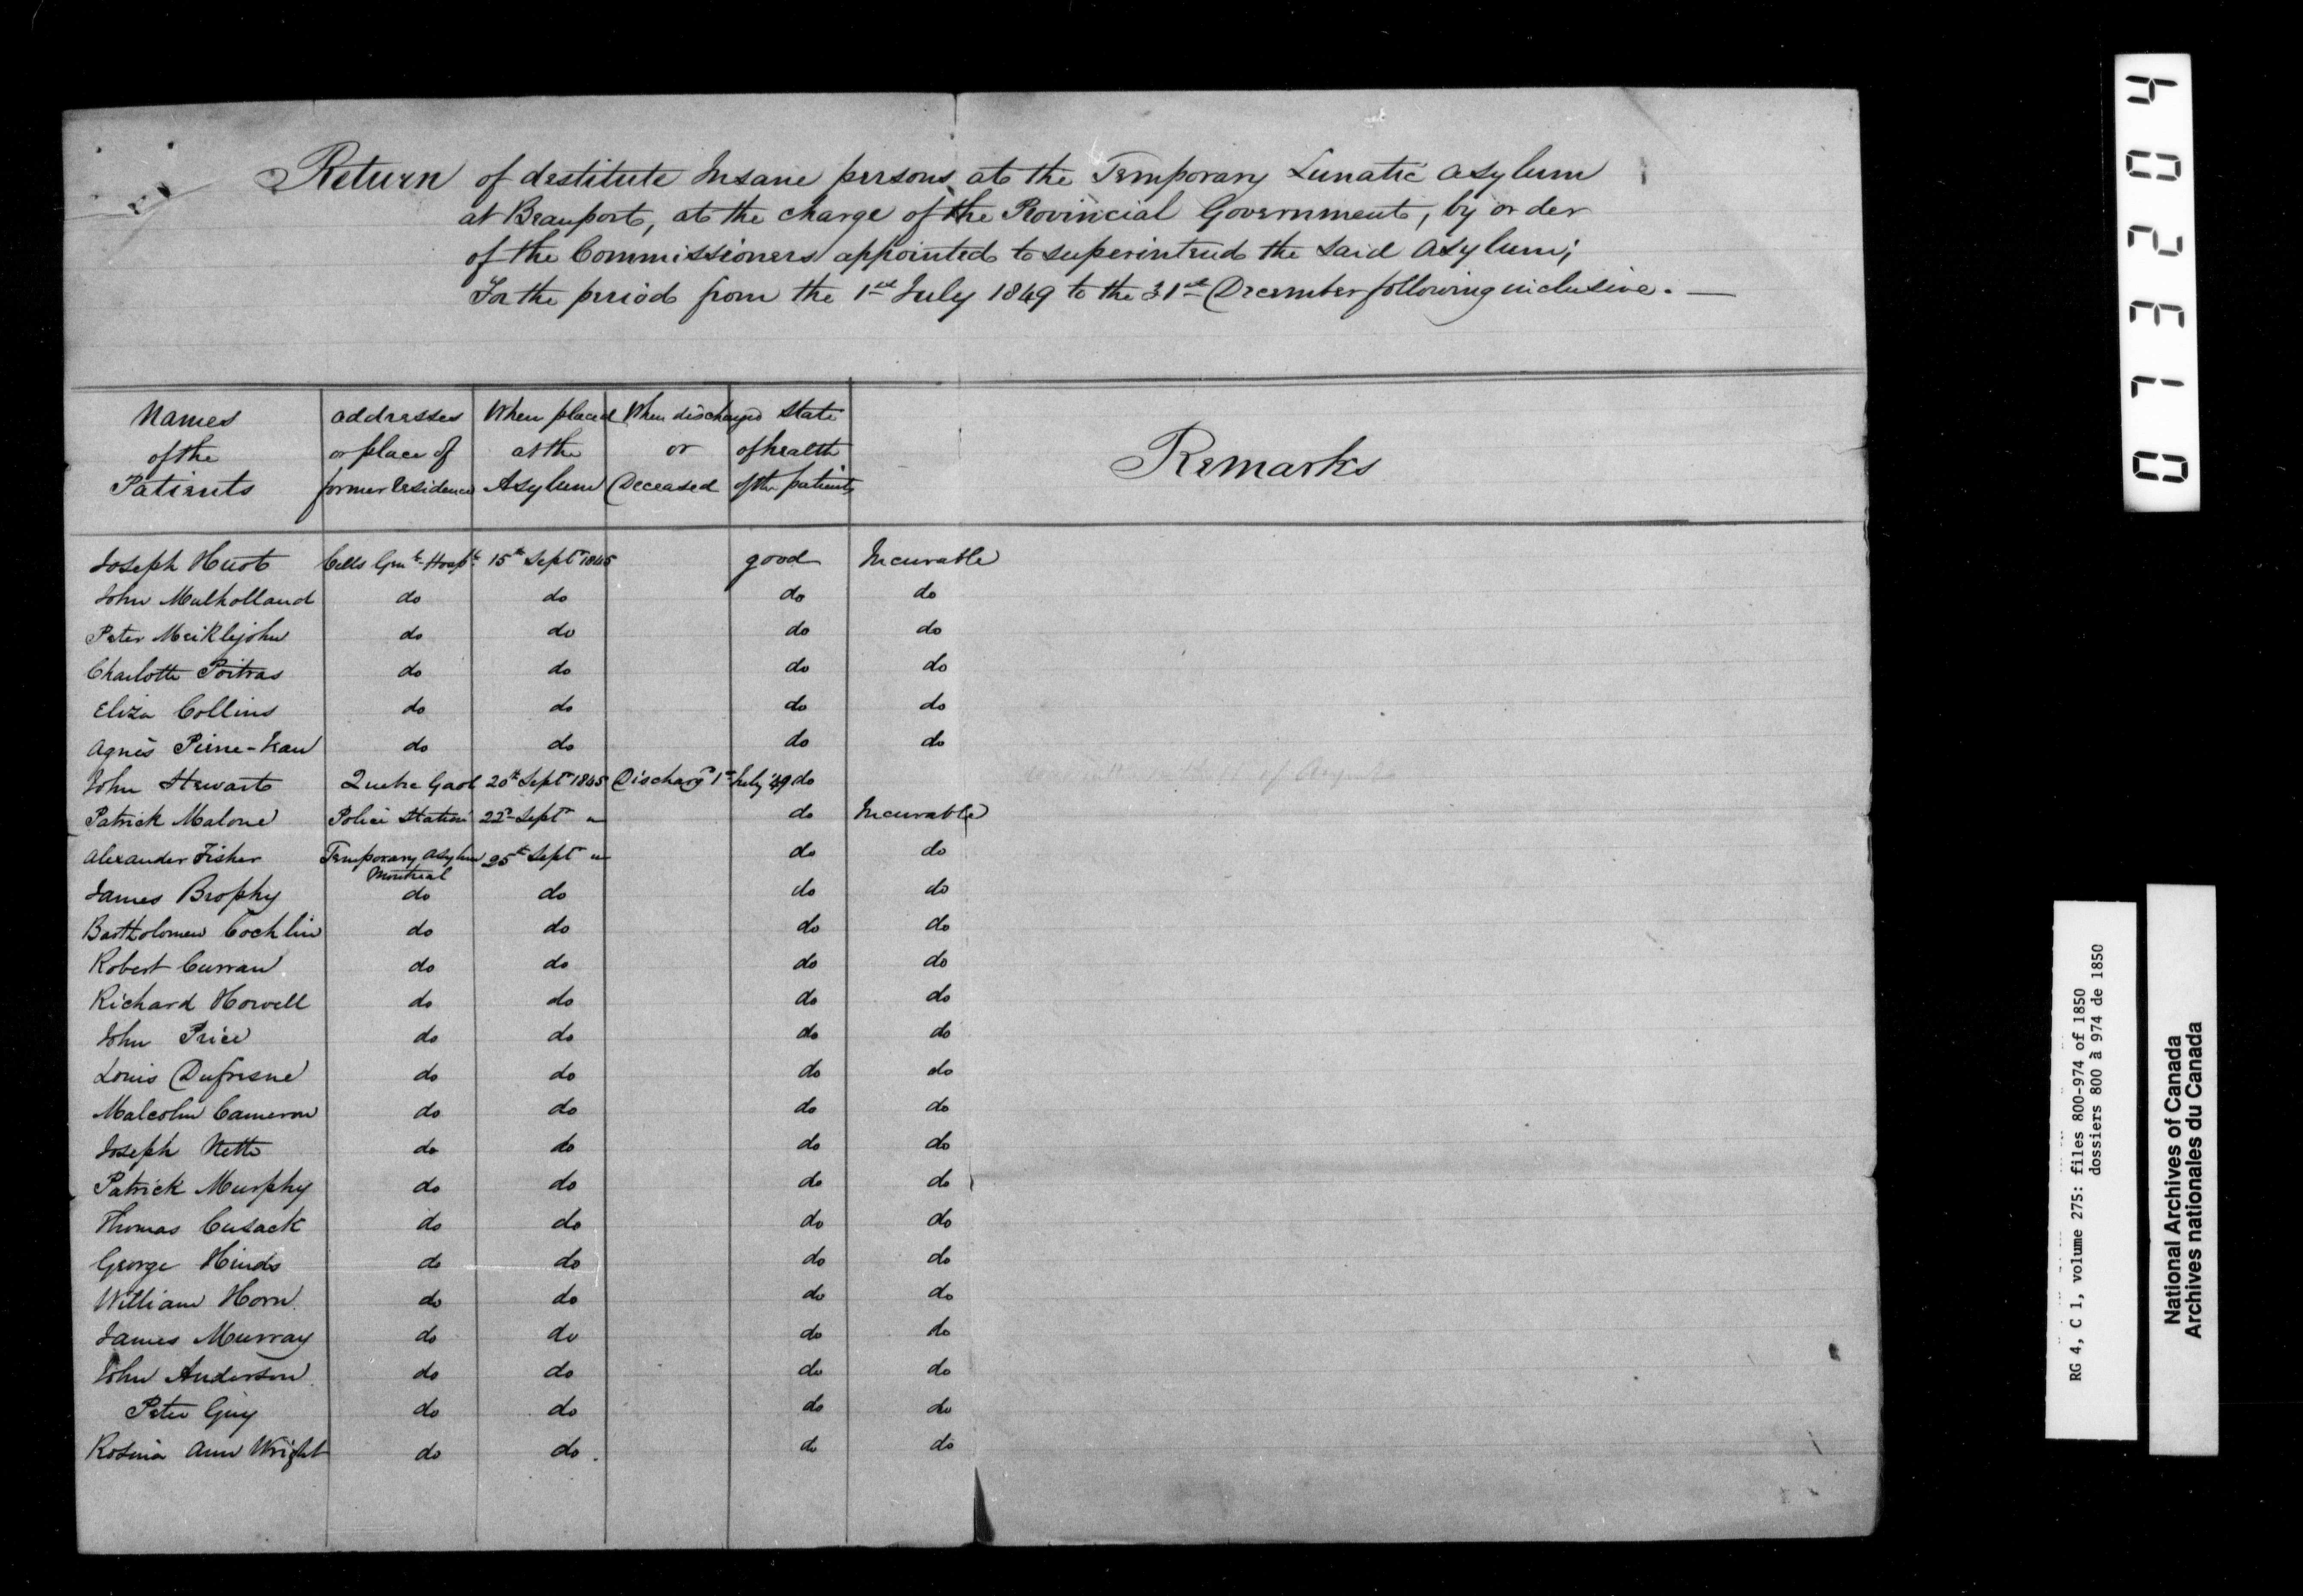 Return of destitute Insane persons at the Temporary Lunatic Asylum
at Beauport, at the charge of the Provincial Government, by order
of the Commissioners appointed to superintend the said Asylum;
For the period from the 1st July 1849 to the 31st December following inclusive. —
Names of the Patients | addresses or place of former residence | When placed at the Asylum | When discharged or Deceased | State of health of the patients | Remarks
Joseph Huot Cells Genl Hospl 15th Sept 1845 good Incurable
John Mulholland do do do do
Peter Meiklejohn do do do do
Charlotte Poitras do do do do
Eliza Collins do do do do
Agnès Pierre-Jean do do do do
John Stewart Quebec Gaol 20th Sept 1845 Discharg'd 1st July '49 do
Patrick Malone Police Station 22d Sept " do Incurable
Alexander Fisher Temporary Asylum Montreal 25th Sept " do do
James Brophy do do do do
Bartholomew Cochlin do do do do
Robert Curran do do do do
Richard Howell do do do do
John Price do do do do
Louis Dufresne do do do do
Malcolm Cameron do do do do
Joseph Nette do do do do
Patrick Murphy do do do do
Thomas Cusack do do do do
George Hinds do do do do
William Horn do do do do
James Murray do do do do
John Anderson do do do do
Peter Guy do do do do
Rosina Ann Wright do do do do
0 7 3 2 0 4
RG 4, C 1, volume 275: files 800-974 of 1850
dossiers 800 à 974 de 1850
National Archives of Canada
Archives nationales du Canada